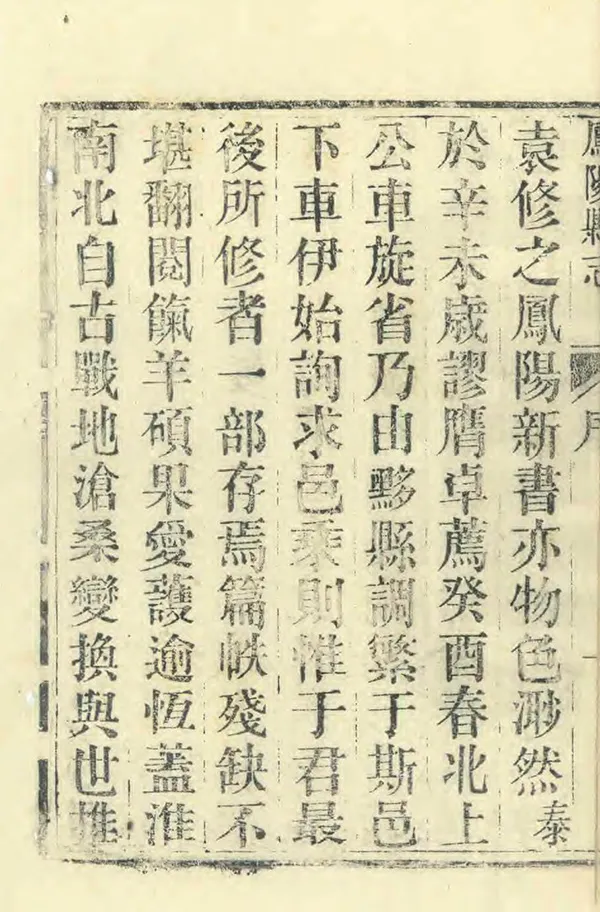 鳳陽縣志
序
袁修之鳳陽新書亦物色渺然泰
於辛未歲謬膺卓薦癸酉春北上
公車旋省乃由黟縣調繁于斯邑
下車伊始詢求邑乘則惟于君最
後所修者一部存焉篇帙殘缺不
堪翻閱餼羊碩果愛護逾恆蓋淮
南北自古戰地滄桑變換與世推